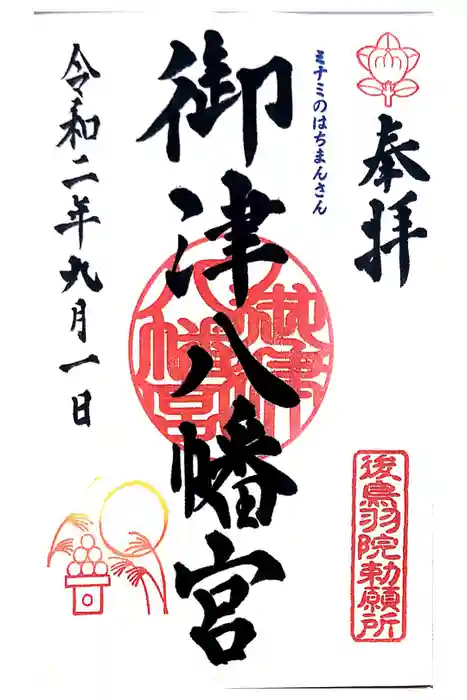 奉拝
ミナミのはちまんさん
御津八幡宮
御津八幡宮
令和二年九月一日
後鳥羽院勅願所